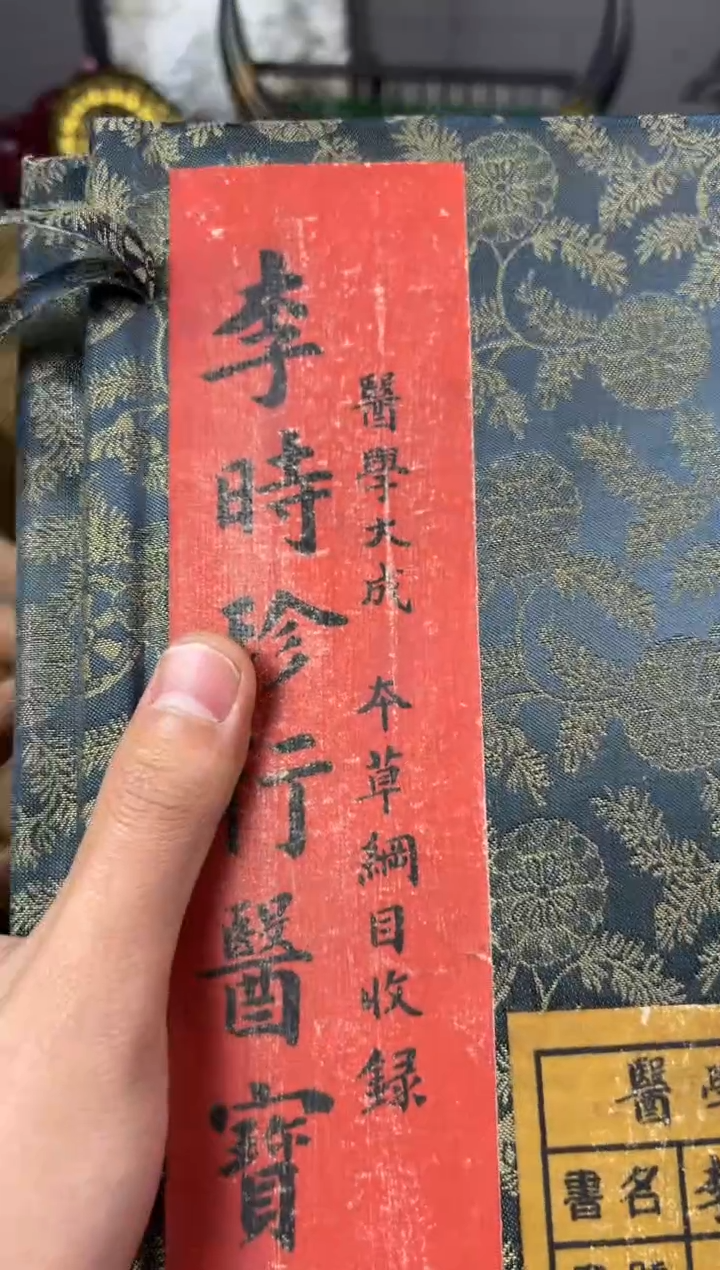 醫學大成 本草綱目收錄
李時珍行醫寶
醫學
書名